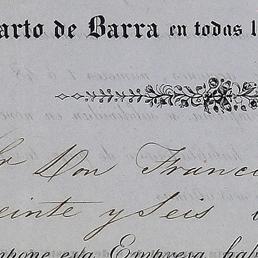 arto de Barra en todas l
Sr Don Franci
einte y Seis
mpone esta Empresa hab